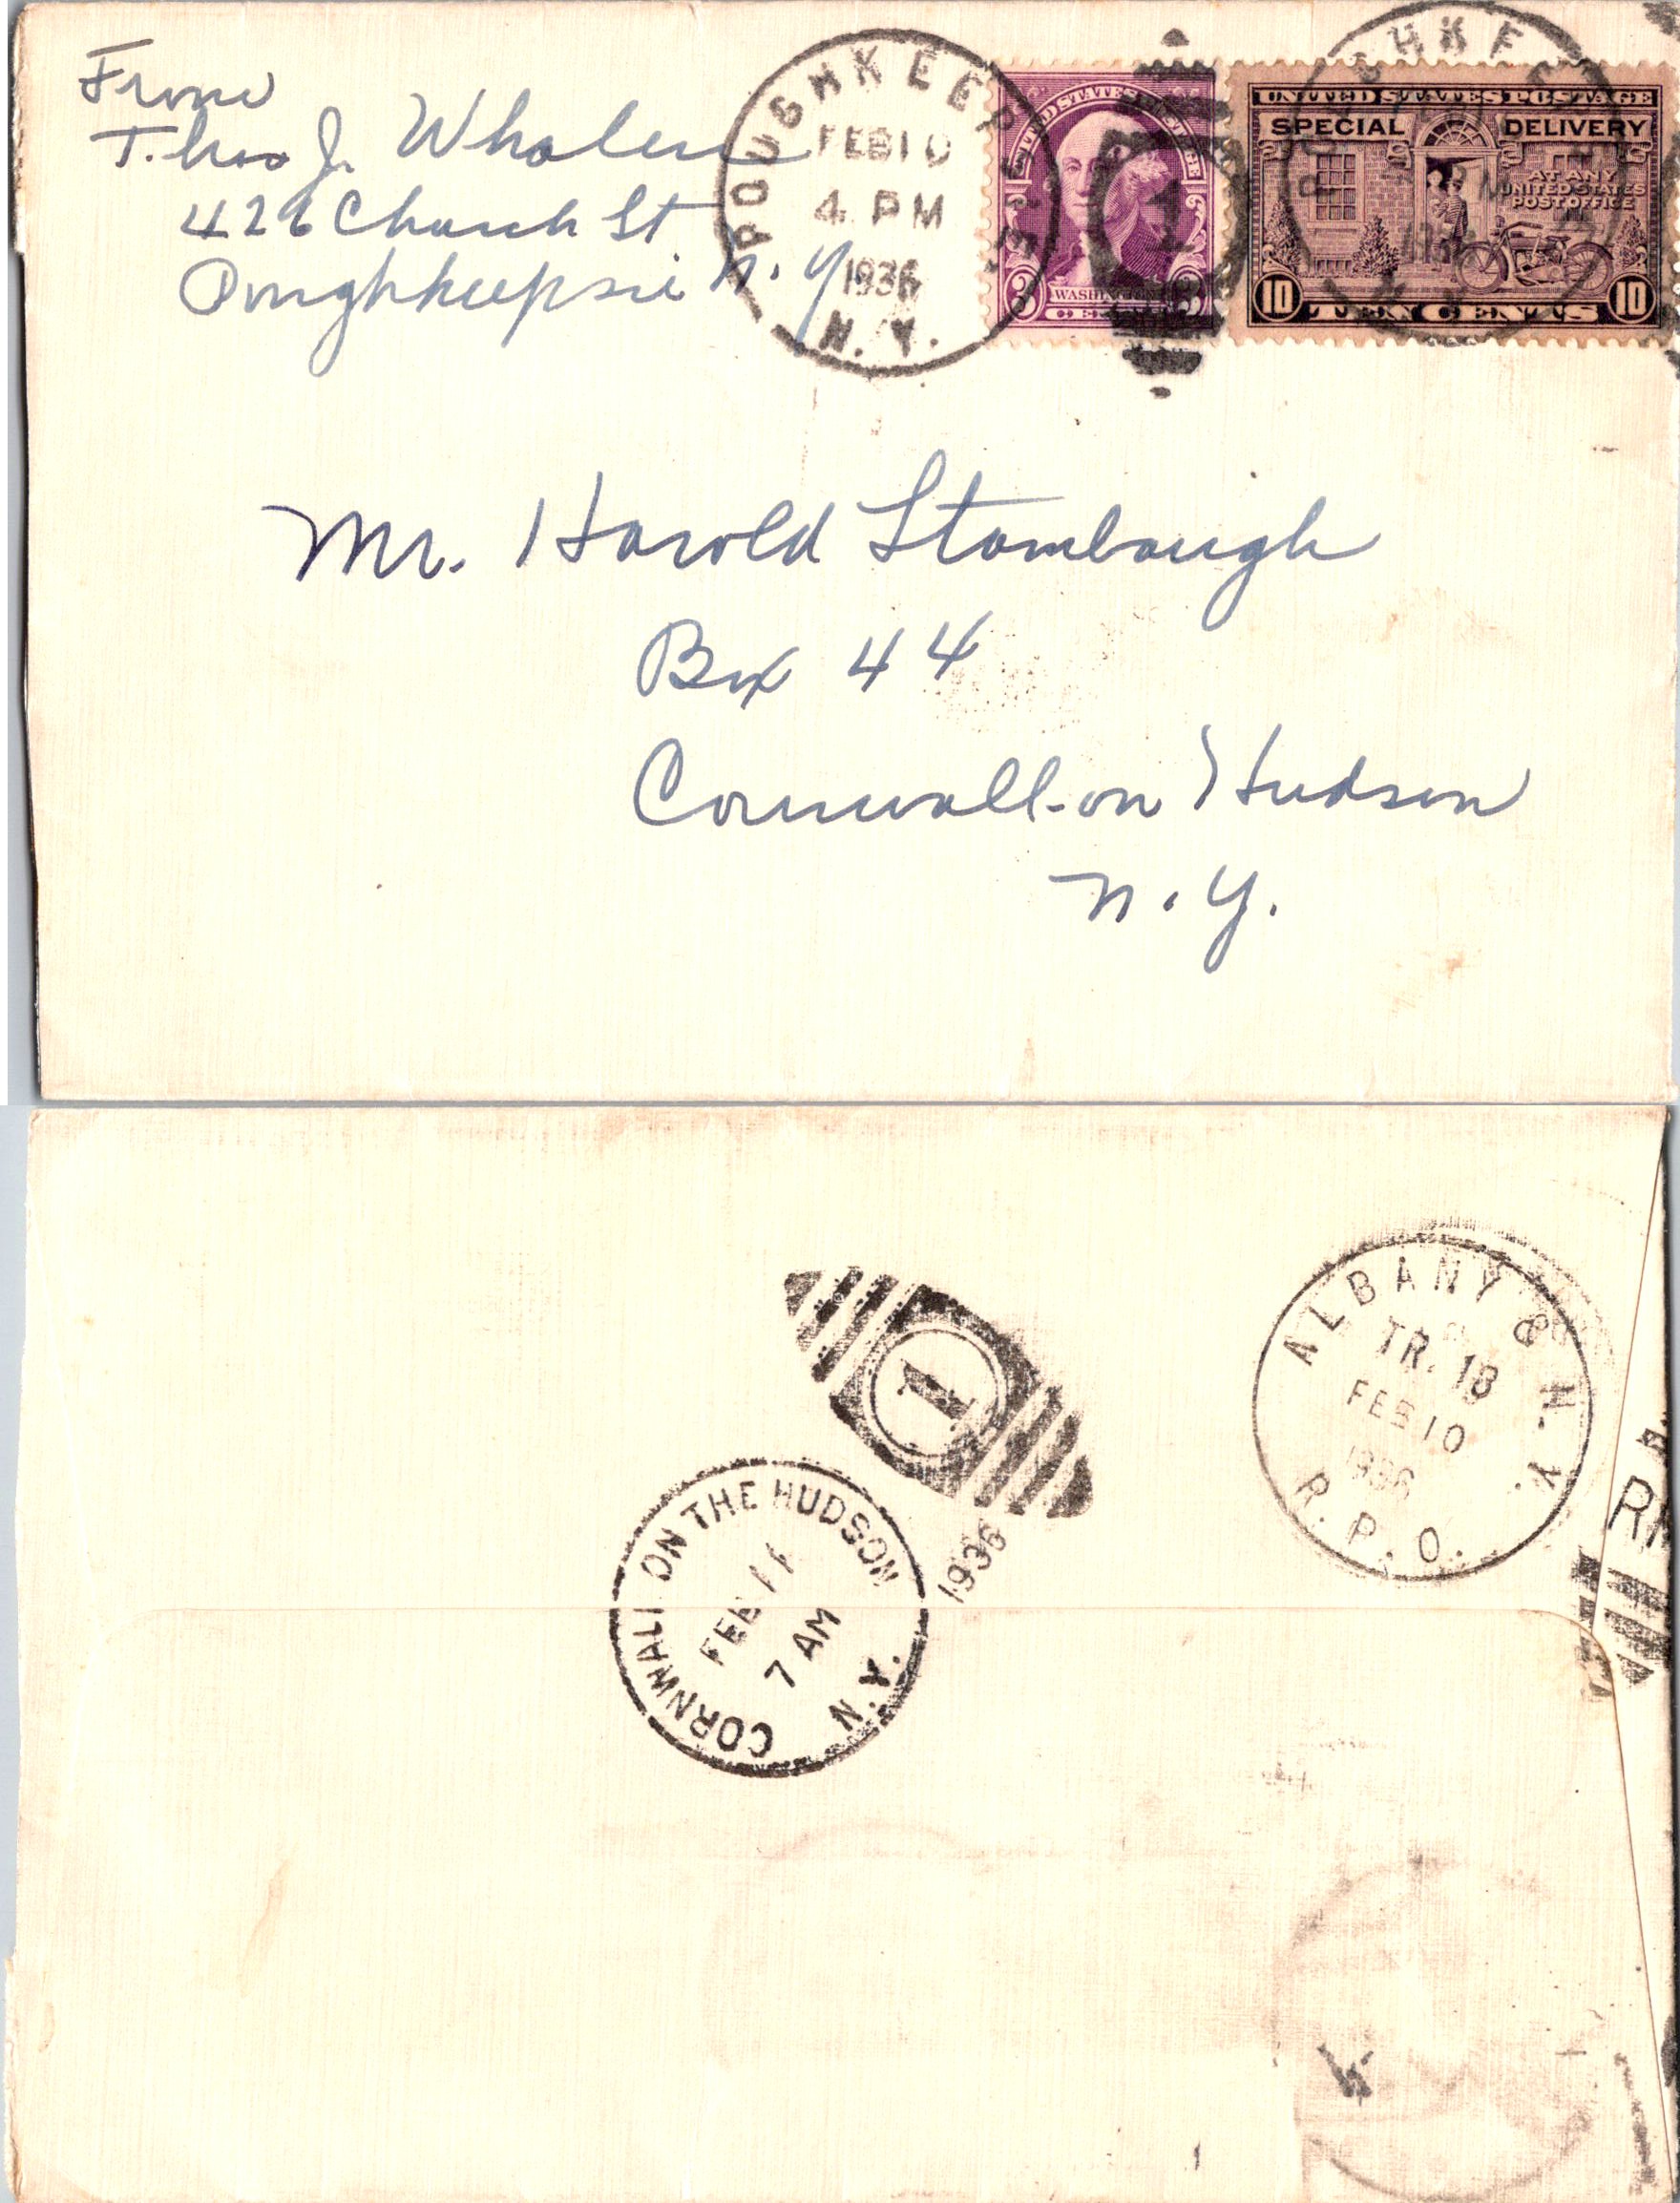 From
Thos J. Whalen
426 Church St
Poughkeepsie N.Y.
POUGHKEEPSIE
FEB 10
4 PM
1936
N.Y.
UNITED STATES POSTAGE
3 WASHINGTON 3
CENTS
1
UNITED STATES POSTAGE
SPECIAL DELIVERY
AT ANY
UNITED STATES
POST OFFICE
10 TEN CENTS 10
Mr. Harold Stambaugh
Box 44
Cornwall-on Hudson
N.Y.
ALBANY & N.Y.
TR. 18
FEB 10
1936
R.P.O.
1
1936
CORNWALL ON THE HUDSON
FEB 11
7 AM
N.Y.